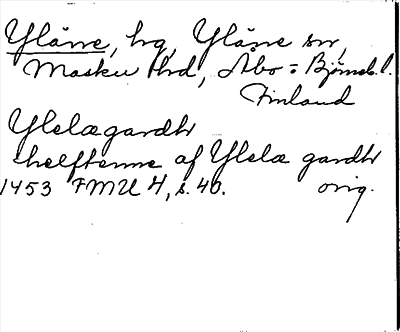 Yläne, hg, Yläne sn,
Masku hrd, Åbo = Björneb. l.
Finland
Ylelægardh
helftenne af Ylelæ gardh
1453 FMU 4, s. 40. orig.